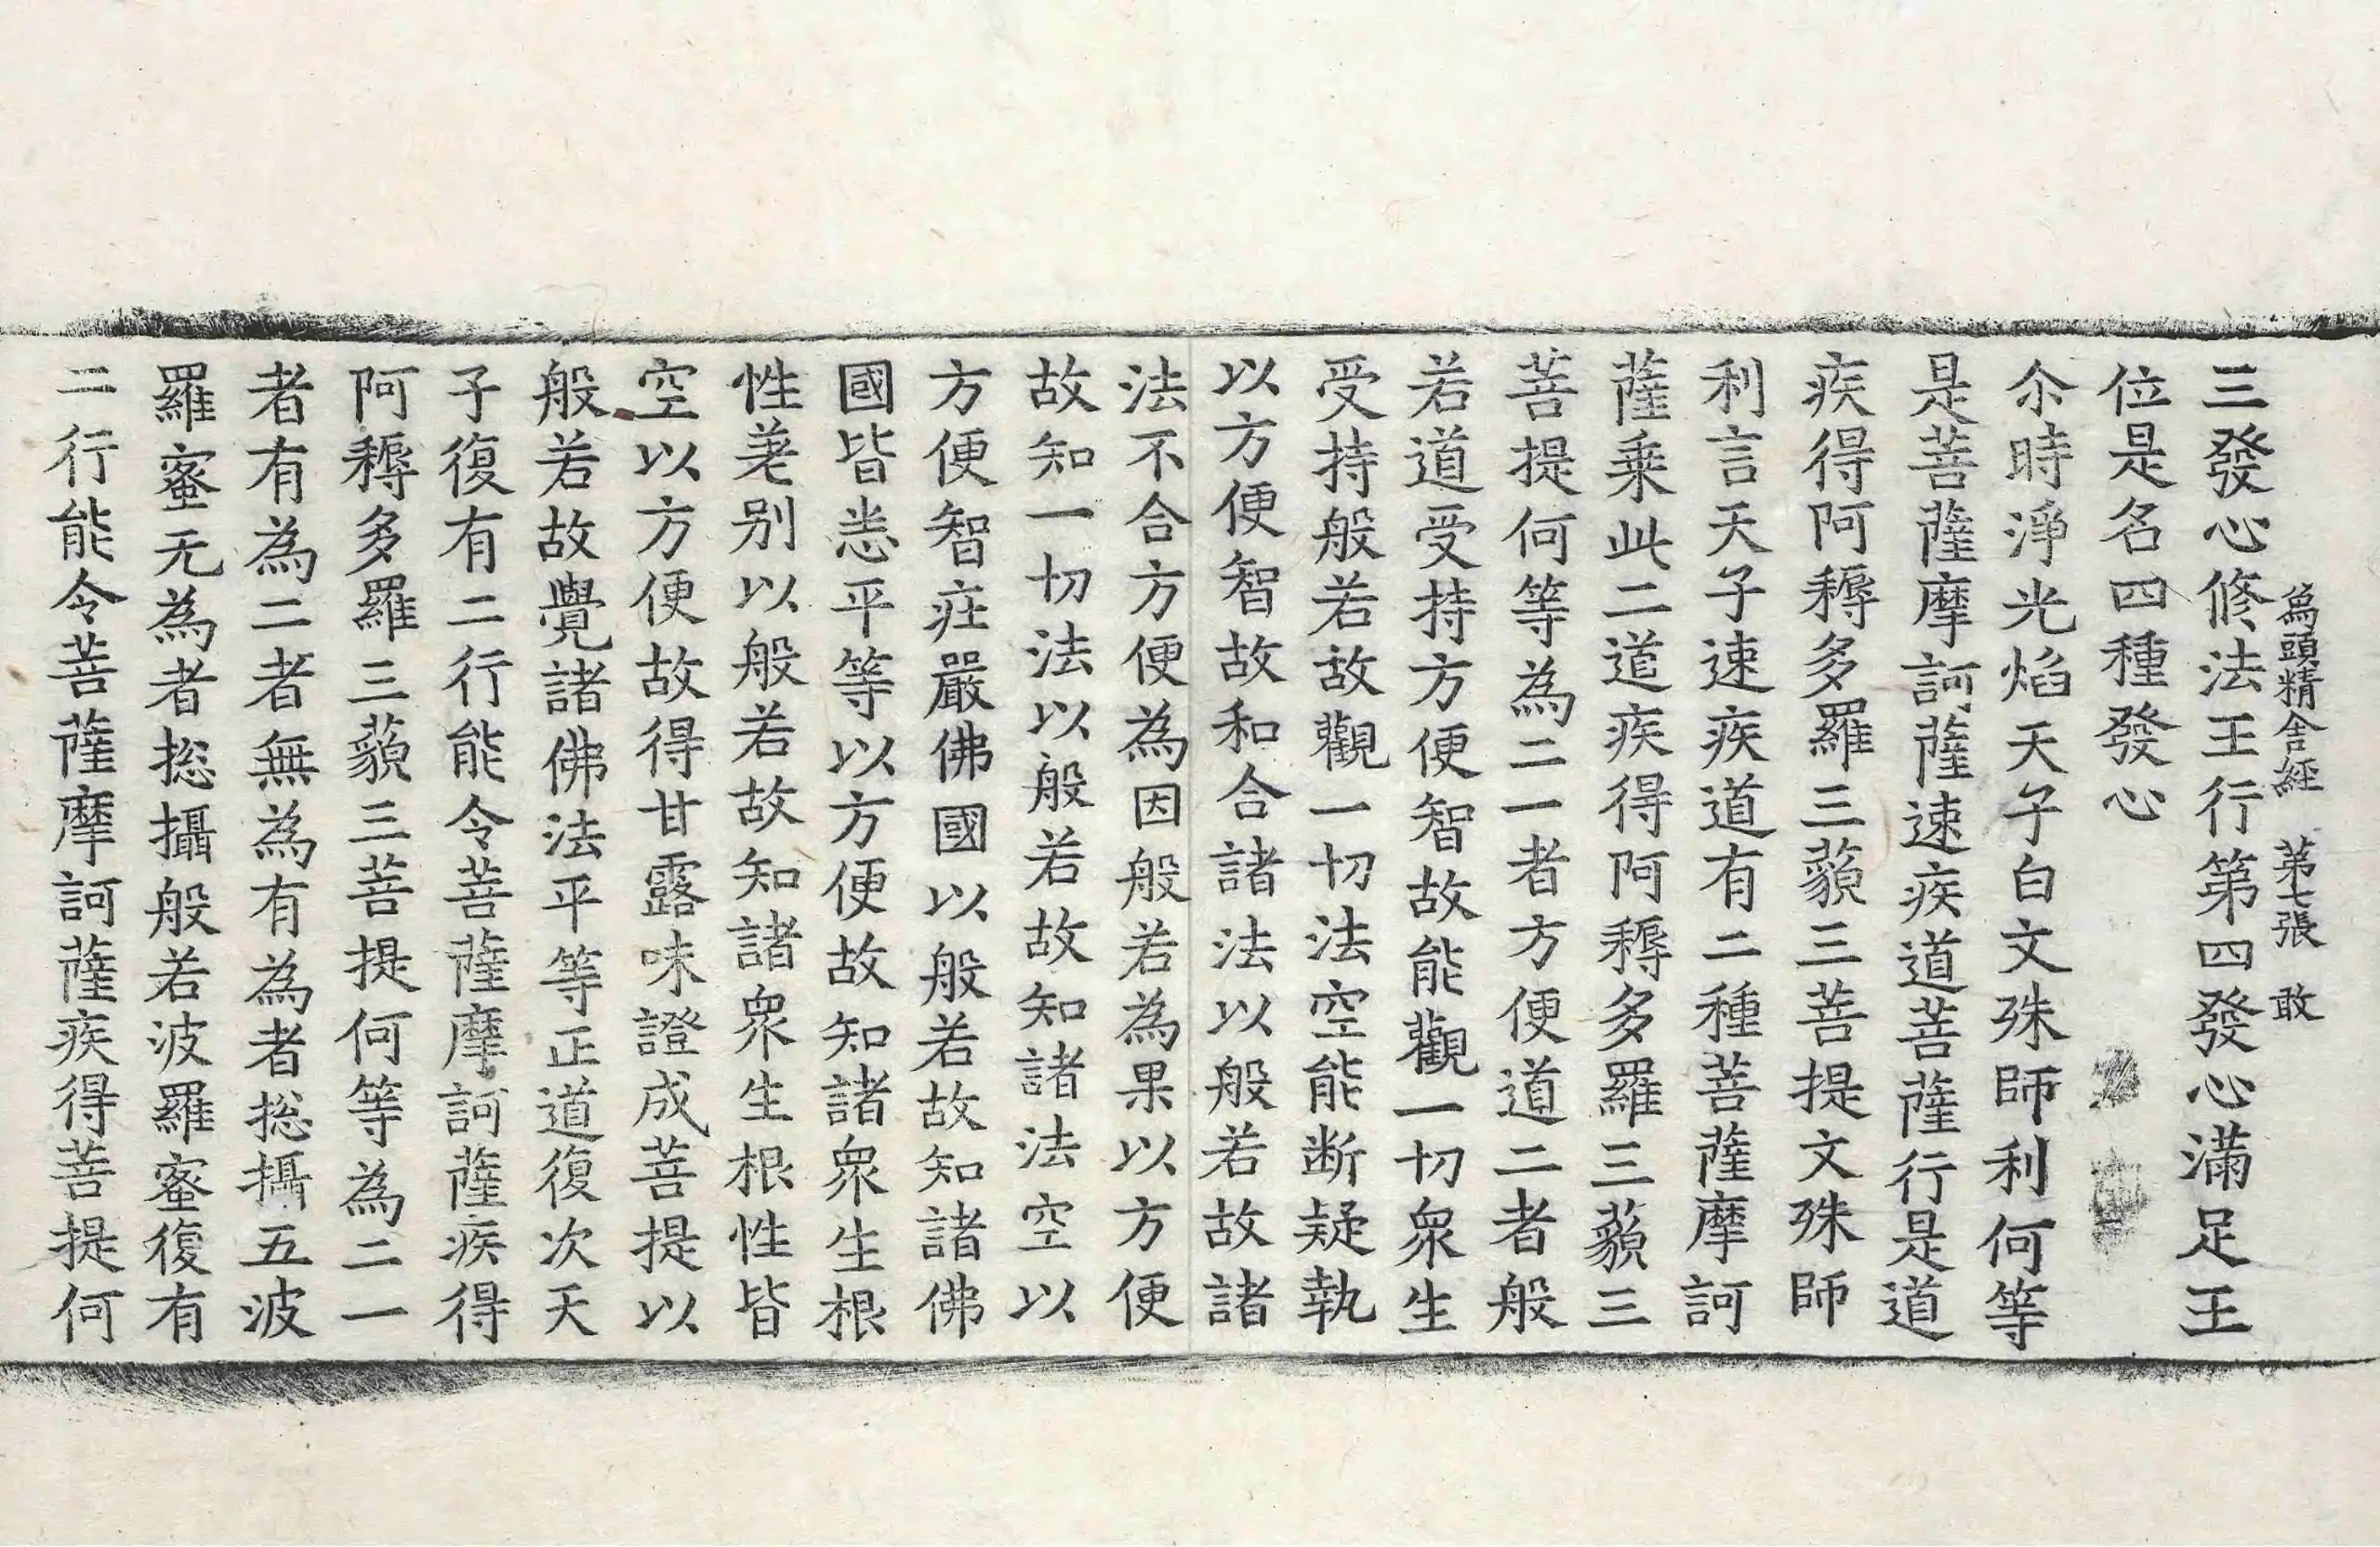 為頭精舍經 第七張 敢
三發心修法王行第四發心滿足王
位是名四種發心
尒時淨光焰天子白文殊師利何等
是菩薩摩訶薩速疾道菩薩行是道
疾得阿耨多羅三藐三菩提文殊師
利言天子速疾道有二種菩薩摩訶
薩乗此二道疾得阿耨多羅三藐三
菩提何等為二一者方便道二者般
若道受持方便智故能觀一切衆生
受持般若故觀一切法空能断疑執
以方便智故和合諸法以般若故諸
法不合方便為因般若為果以方便
故知一切法以般若故知諸法空以
方便智庄嚴佛國以般若故知諸佛
國皆悉平等以方便故知諸衆生根
性差别以般若故知諸衆生根性皆
空以方便故得甘露味證成菩提以
般若故覺諸佛法平等正道復次天
子復有二行能令菩薩摩訶薩疾得
阿耨多羅三藐三菩提何等為二一
者有為二者無為有為者揔攝五波
羅蜜无為者揔攝般若波羅蜜復有
二行能令菩薩摩訶薩疾得菩提何